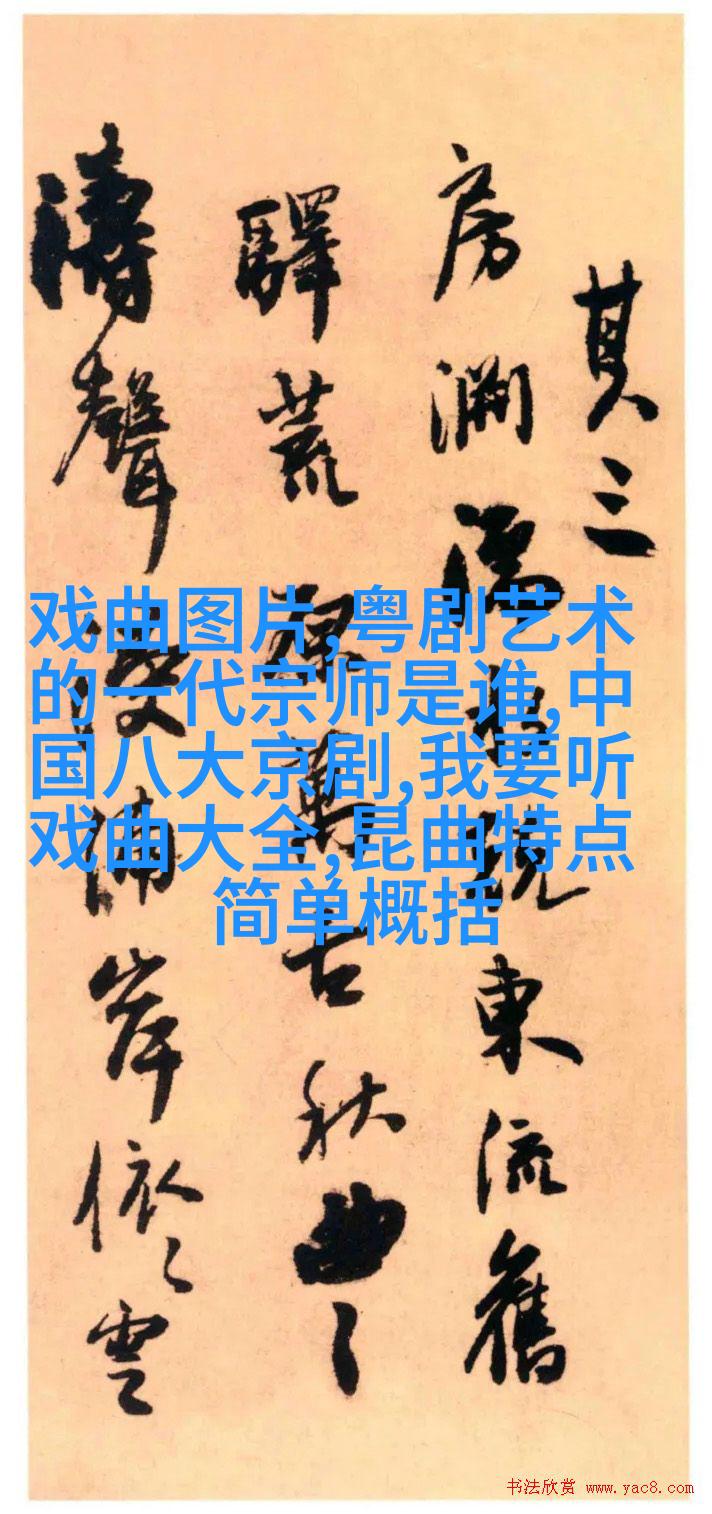 其三
房澗東流舊
驛荒萬古秋曲〻
濤聲岸依〻雲
戏曲图片,粤剧艺术
的一代宗师是谁,中
国八大京剧,我要听
戏曲大全,昆曲特点
简单概括
书法欣赏 www.yac8.com